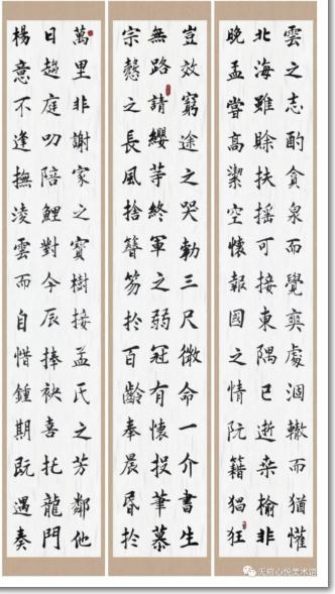 雲之志酌貪泉而覺爽處涸轍而猶懽
北海雖賒扶搖可接東隅已逝桑榆非
晚孟嘗高潔空懷報國之情阮籍猖狂
豈效窮途之哭勃三尺微命一介書生
無路請纓等終軍之弱冠有懷投筆慕
宗愨之長風捨簪笏於百齡奉晨昏於
萬里非謝家之寶樹接孟氏之芳鄰他
日趨庭叨陪鯉對今辰捧袂喜托龍門
楊意不逢撫淩雲而自惜鍾期既遇奏